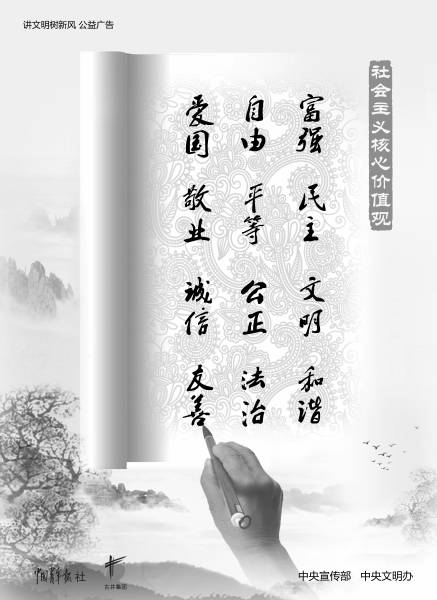 讲文明树新风 公益广告
社会主义核心价值观
富强 民主 文明 和谐
自由 平等 公正 法治
爱国 敬业 诚信 友善
中国青年报社
古井集团
中央宣传部 中央文明办